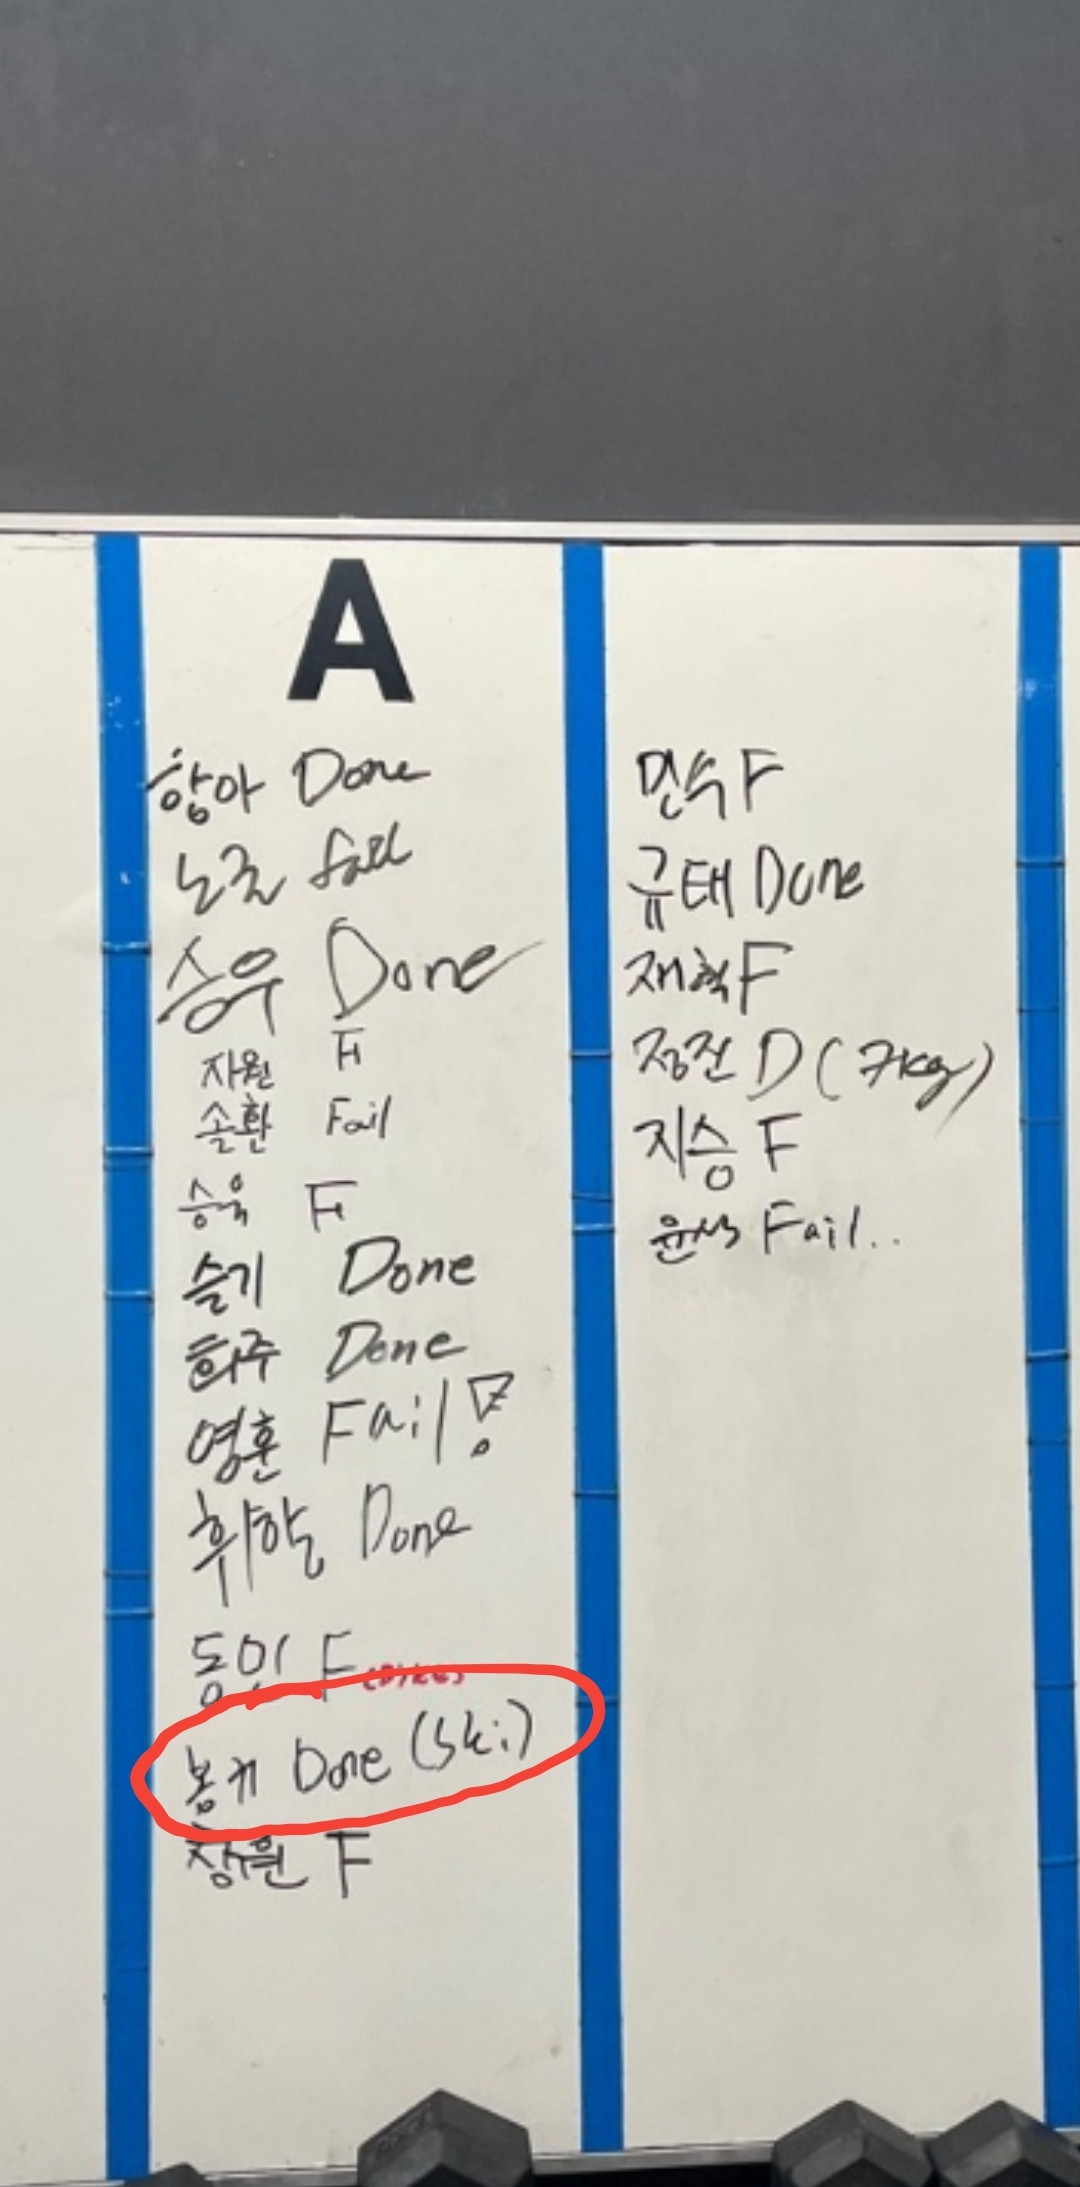 A
항아 Done
노준 fail
승우 Done
자원 F
손환 Fail
승욱 F
슬기 Done
희주 Done
영훈 Fail!
휘하늘 Done
동인 F
봉기 Done (Ski)
창원 F
민숙 F
규태 Done
재혁 F
정진 D (7kg)
지승 F
윤식 Fail..